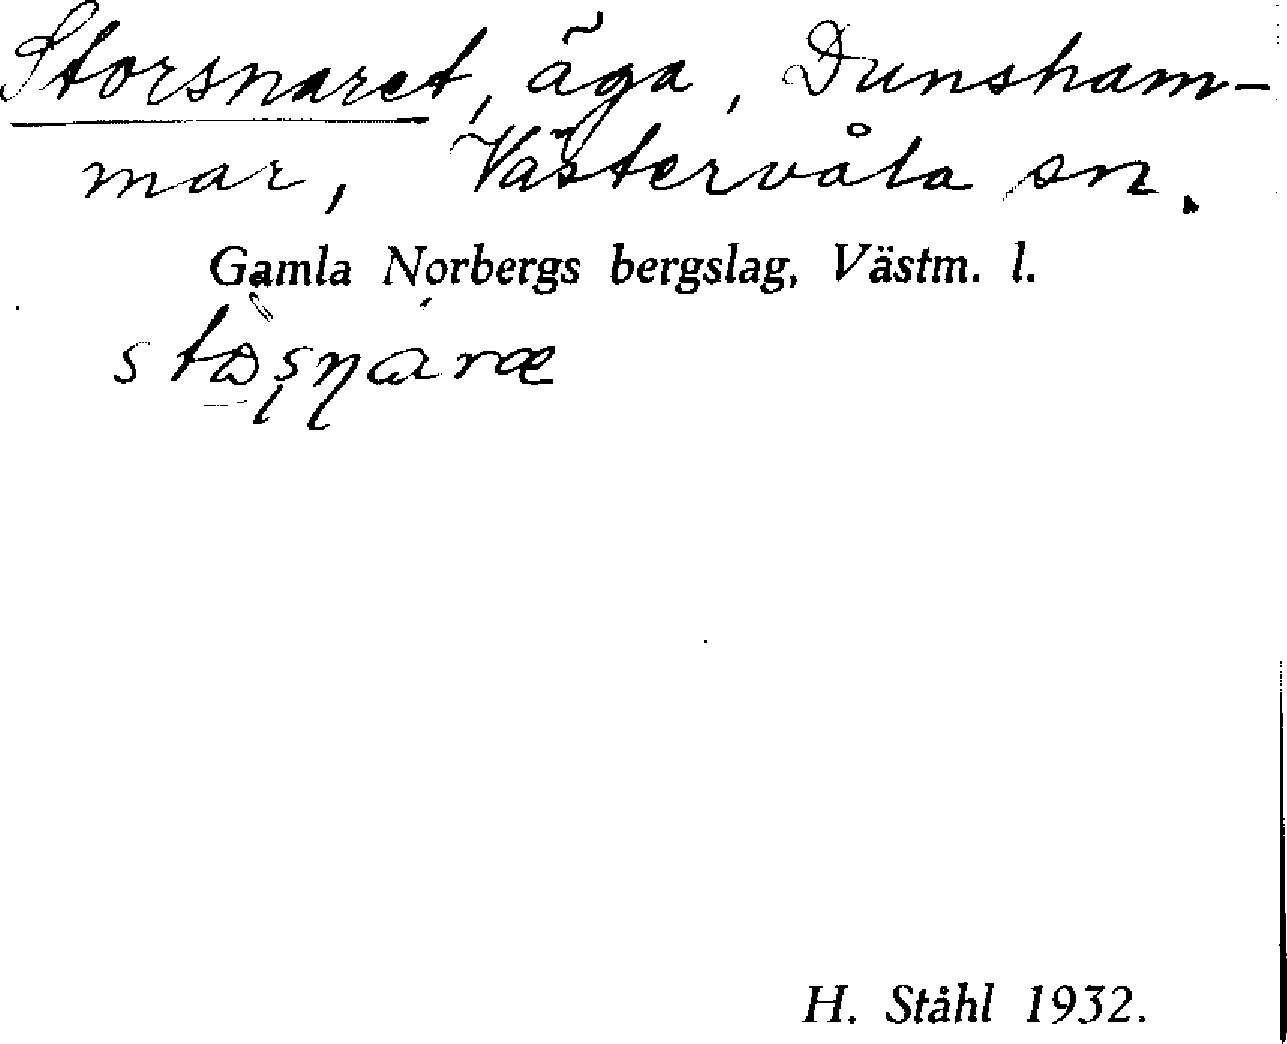 Storsnaret, äga, Dunsham-
mar, Västervåla sn.
Gamla Norbergs bergslag, Västm. l.
H. Ståhl 1932.